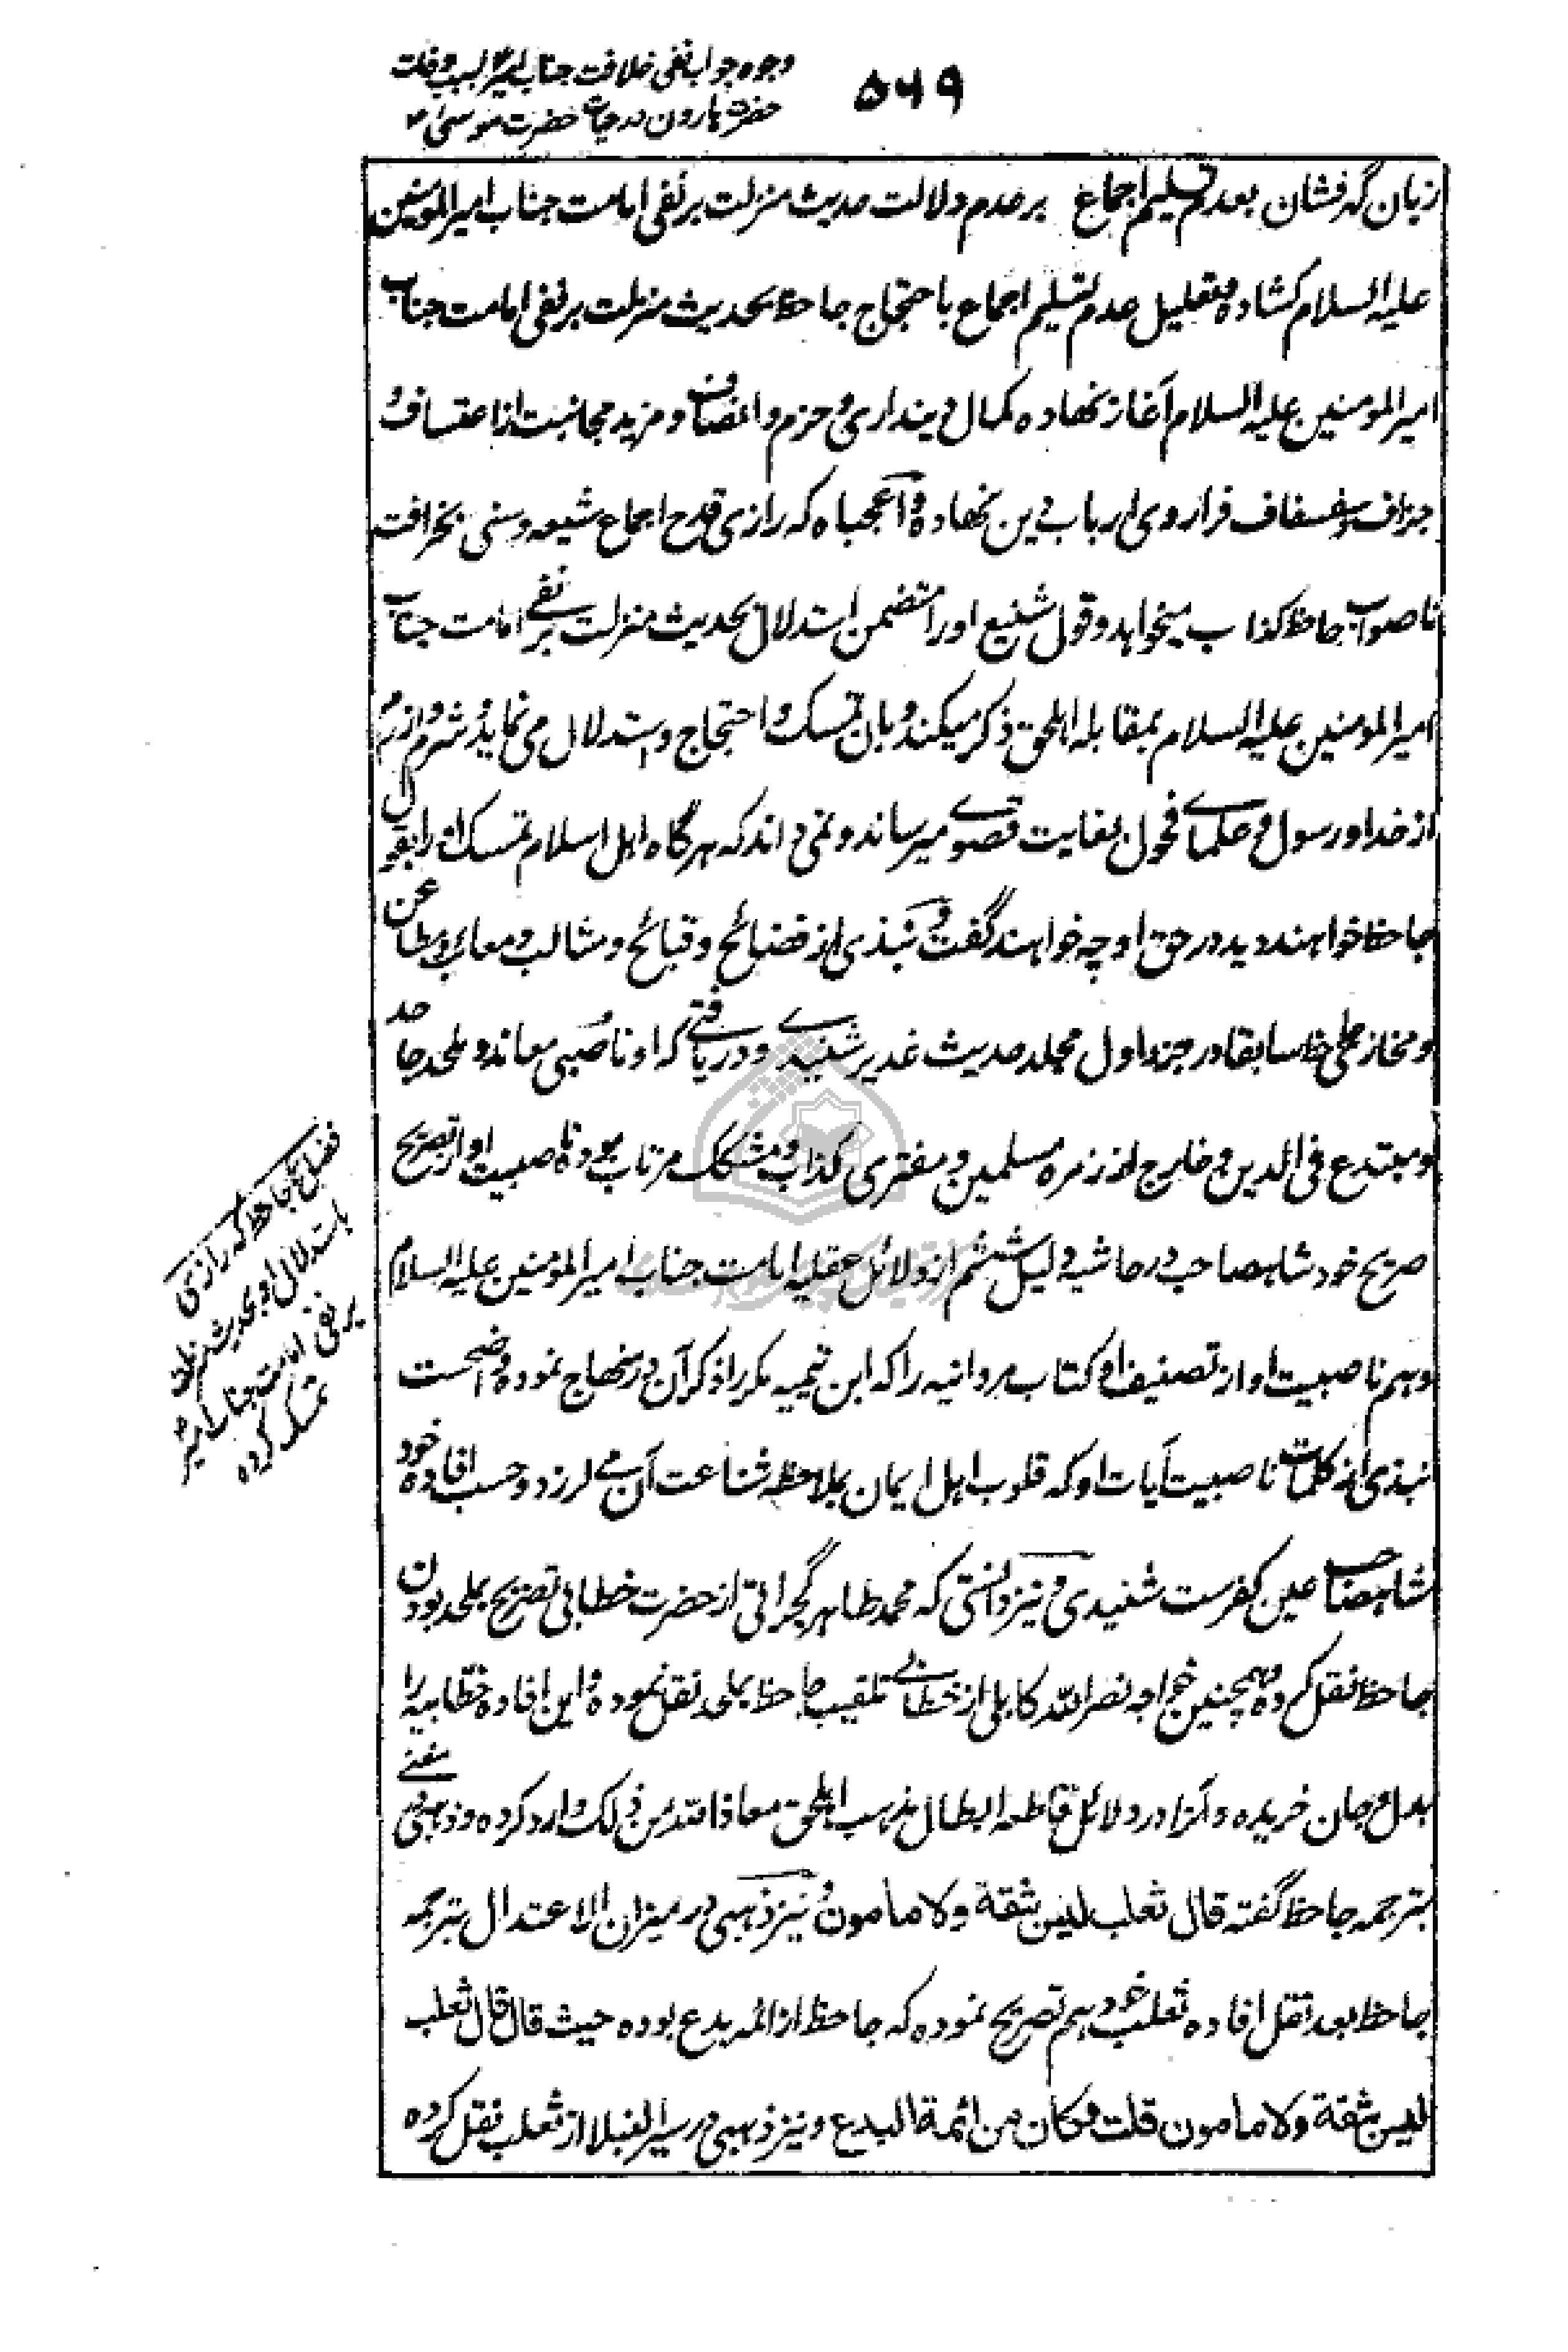 وجوه جواب نفی خلافت جناب امیرؑ بسبب وفات
حضرت هارون در حیات حضرت موسیؑ
۵۶۹
زبان گهرفشان بعدم تسلیم اجماع بر عدم دلالت حدیث منزلت بر نفی امامت جناب امیرالمومنین
علیه السلام کشاده و تعلیل عدم تسلیم اجماع باحتجاج جاحظ بحدیث منزلت بر نفی امامت جناب
امیرالمومنین علیه السلام آغاز نهاده کمال دینداری و حزم و انصاف و مزید مجانبت از اعتساف و
جزاف و سفساف فرا روی ارباب دین نهاده وا عجباه که رازی قدح اجماع شیعه و سنی بخرافت
ناصواب جاحظ کذاب میخواهد و قول شنیع او را متضمن استدلال بحدیث منزلت بر نفی امامت جناب
امیرالمومنین علیه السلام بمقابله اهلحق ذکر میکند و بان تمسک و احتجاج و استدلال می نماید و شرم و آزرم
از خدا و رسول و علمای فحول بغایت قصوی میرساند و نمی داند که هرگاه اهل اسلام تمسک او را بقول
جاحظ خواهند دید در حق او چه خواهند گفت و نبذی از فضائح و قبائح و مثالب و معائب و مطاعن
و مخازی جاحظ سابقا در جزء اول مجلد حدیث غدیر شنیدی و دریافتی که او ناصبی معاند و ملحد جاحد
و مبتدع فی الدین و خارج از زمره مسلمین و مفتری کذاب و مشکک مرتاب بوده ناصبیت او از تصریح
صریح خود شاهصاحب در حاشیه دلیل ششم از دلائل عقلیه امامت جناب امیرالمؤمنین علیه السلام
و هم ناصبیت او از تصنیف او کتاب مروانیه را که ابن تیمیه مکررا ذکر آن در منهاج نموده واضحست
نبذی از کلمات ناصبیت آیات او که قلوب اهل ایمان بملاحظه شناعت آن می لرزد و حسب افاده خود
شاهصاحب عین کفرست شنیدی و نیز دانستی که محمد طاهر گجراتی از حضرت خطابی تصریح بملحد بودن
جاحظ نقل کرده و همچنین خواجه نصرالله کابلی از خطابی تلقیب جاحظ بملحد نقل نموده و این افاده خطابیه را
بدل و جان خریده و آنرا در دلائل قاطعه ابطال مذهب اهلحق معاذ الله من ذلک وارد کرده و ذهبی در مغنی
بترجمه جاحظ گفته قال ثعلب لیس بثقة ولا مامون و نیز ذهبی در میزان الاعتدال بترجمه
جاحظ بعد نقل افاده ثعلب خود هم تصریح نموده که جاحظ از ائمه بدع بوده حیث قال قال ثعلب
لیس بثقة ولا مامون قلت و کان من ائمة البدع و نیز ذهبی در سیر النبلا از ثعلب نقل کرده
فضائح جاحظ که رازی
باستدلال او بحدیث منزلت
بر نفی امامت جناب امیرؑ
تمسک کرده